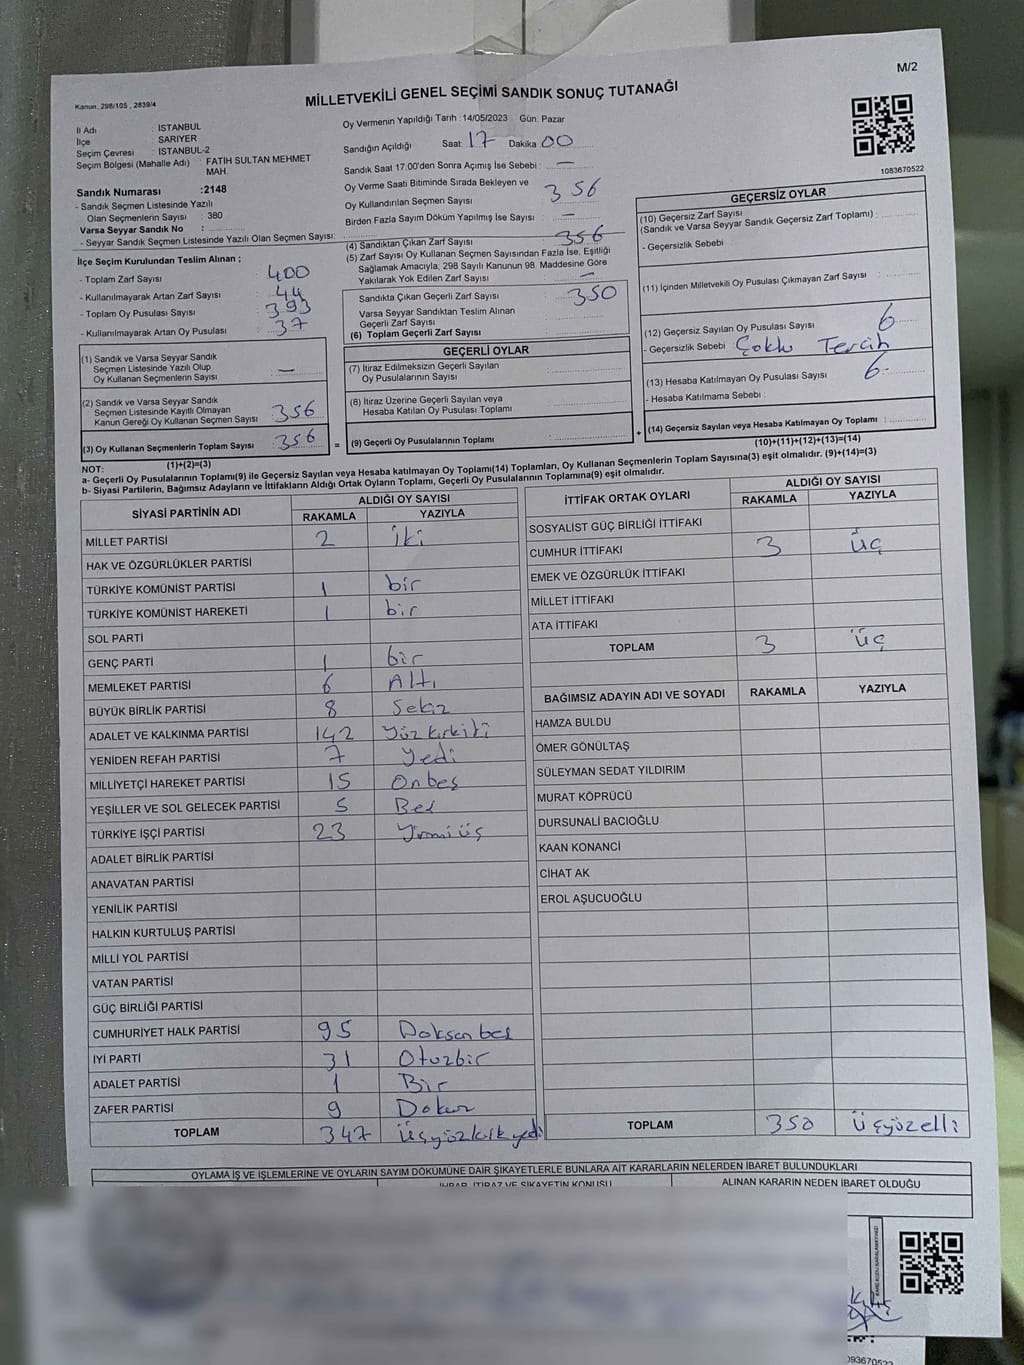 M/2
Kanun, 298/105 , 2839/4
MİLLETVEKİLİ GENEL SEÇİMİ SANDIK SONUÇ TUTANAĞI
İl Adı : İSTANBUL
İlçe : SARIYER
Seçim Çevresi : İSTANBUL-2
Seçim Bölgesi (Mahalle Adı) : FATİH SULTAN MEHMET MAH.
Sandık Numarası :2148
- Sandık Seçmen Listesinde Yazılı
Olan Seçmenlerin Sayısı : 380
Varsa Seyyar Sandık No :
- Seyyar Sandık Seçmen Listesinde Yazılı Olan Seçmen Sayısı:
İlçe Seçim Kurulundan Teslim Alınan ;
- Toplam Zarf Sayısı : 400
- Kullanılmayarak Artan Zarf Sayısı : 44
- Toplam Oy Pusulası Sayısı : 393
- Kullanılmayarak Artan Oy Pusulası : 37
(1) Sandık ve Varsa Seyyar Sandık
Seçmen Listesinde Yazılı Olup
Oy Kullanan Seçmenlerin Sayısı : —
(2) Sandık ve Varsa Seyyar Sandık
Seçmen Listesinde Kayıtlı Olmayan
Kanun Gereği Oy Kullanan Seçmen Sayısı : 356
(3) Oy Kullanan Seçmenlerin Toplam Sayısı : 356
(1)+(2)=(3)
Oy Vermenin Yapıldığı Tarih :14/05/2023 Gün: Pazar
Sandığın Açıldığı Saat: 17 Dakika 00
Sandık Saat 17:00'den Sonra Açımış İse Sebebi : —
Oy Verme Saati Bitiminde Sırada Bekleyen ve
Oy Kullandırılan Seçmen Sayısı : 356
Birden Fazla Sayım Döküm Yapılmış İse Sayısı : —
(4) Sandıktan Çıkan Zarf Sayısı : 356
(5) Zarf Sayısı Oy Kullanan Seçmen Sayısından Fazla İse, Eşitliği
Sağlamak Amacıyla, 298 Sayılı Kanunun 98. Maddesine Göre
Yakılarak Yok Edilen Zarf Sayısı : —
Sandıkta Çıkan Geçerli Zarf Sayısı : 350
Varsa Seyyar Sandıktan Teslim Alınan
Geçerli Zarf Sayısı :
(6) Toplam Geçerli Zarf Sayısı :
GEÇERLİ OYLAR
(7) İtiraz Edilmeksizin Geçerli Sayılan
Oy Pusulalarının Sayısı :
(8) İtiraz Üzerine Geçerli Sayılan veya
Hesaba Katılan Oy Pusulası Toplamı :
= (9) Geçerli Oy Pusulalarının Toplamı : +
1083670522
GEÇERSİZ OYLAR
(10) Geçersiz Zarf Sayısı
(Sandık ve Varsa Seyyar Sandık Geçersiz Zarf Toplamı) :
- Geçersizlik Sebebi :
(11) İçinden Milletvekili Oy Pusulası Çıkmayan Zarf Sayısı :
(12) Geçersiz Sayılan Oy Pusulası Sayısı : 6
- Geçersizlik Sebebi : Çoklu Tercih
(13) Hesaba Katılmayan Oy Pusulası Sayısı : 6-
- Hesaba Katılmama Sebebi :
(14) Geçersiz Sayılan veya Hesaba Katılmayan Oy Toplamı :
(10)+(11)+(12)+(13)=(14)
NOT:
a- Geçerli Oy Pusulaları Toplamı(9) ile Geçersiz Sayılan veya Hesaba katılmayan Oy Toplamı(14) Toplamları, Oy Kullanan Seçmenlerin Toplam Sayısına(3) eşit olmalıdır. (9)+(14)=(3)
b- Siyasi Partilerin, Bağımsız Adayların ve İttifakların Aldığı Ortak Oyların Toplamı, Geçerli Oy Pusulalarının Toplamına(9) eşit olmalıdır.
SİYASİ PARTİNİN ADI ALDIĞI OY SAYISI
RAKAMLA YAZIYLA
MİLLET PARTİSİ 2 iki
HAK VE ÖZGÜRLÜKLER PARTİSİ
TÜRKİYE KOMÜNİST PARTİSİ 1 bir
TÜRKİYE KOMÜNİST HAREKETİ 1 bir
SOL PARTİ
GENÇ PARTİ 1 bir
MEMLEKET PARTİSİ 6 Altı
BÜYÜK BİRLİK PARTİSİ 8 Sekiz
ADALET VE KALKINMA PARTİSİ 142 Yüz kırkiki
YENİDEN REFAH PARTİSİ 7 Yedi
MİLLİYETÇİ HAREKET PARTİSİ 15 Onbeş
YEŞİLLER VE SOL GELECEK PARTİSİ 5 Beş
TÜRKİYE İŞÇİ PARTİSİ 23 Yirmiüş
ADALET BİRLİK PARTİSİ
ANAVATAN PARTİSİ
YENİLİK PARTİSİ
HALKIN KURTULUŞ PARTİSİ
MİLLİ YOL PARTİSİ
VATAN PARTİSİ
GÜÇ BİRLİĞİ PARTİSİ
CUMHURİYET HALK PARTİSİ 95 Doksan beş
İYİ PARTİ 31 Otuzbir
ADALET PARTİSİ 1 Bir
ZAFER PARTİSİ 9 Dokuz
TOPLAM 347 Üçyüzkırk yedi
İTTİFAK ORTAK OYLARI ALDIĞI OY SAYISI
RAKAMLA YAZIYLA
SOSYALİST GÜÇ BİRLİĞİ İTTİFAKI
CUMHUR İTTİFAKI 3 üç
EMEK VE ÖZGÜRLÜK İTTİFAKI
MİLLET İTTİFAKI
ATA İTTİFAKI
TOPLAM 3 üç
BAĞIMSIZ ADAYIN ADI VE SOYADI RAKAMLA YAZIYLA
HAMZA BULDU
ÖMER GÖNÜLTAŞ
SÜLEYMAN SEDAT YILDIRIM
MURAT KÖPRÜCÜ
DURSUNALİ BACIOĞLU
KAAN KONANCİ
CİHAT AK
EROL AŞUCUOĞLU
TOPLAM 350 Üçyüzelli
OYLAMA İŞ VE İŞLEMLERİNE VE OYLARIN SAYIM DÖKÜMÜNE DAİR ŞİKAYETLERLE BUNLARA AİT KARARLARIN NELERDEN İBARET BULUNDUKLARI
İHBAR, İTİRAZ VE ŞİKAYETİN KONUSU ALINAN KARARIN NEDEN İBARET OLDUĞU